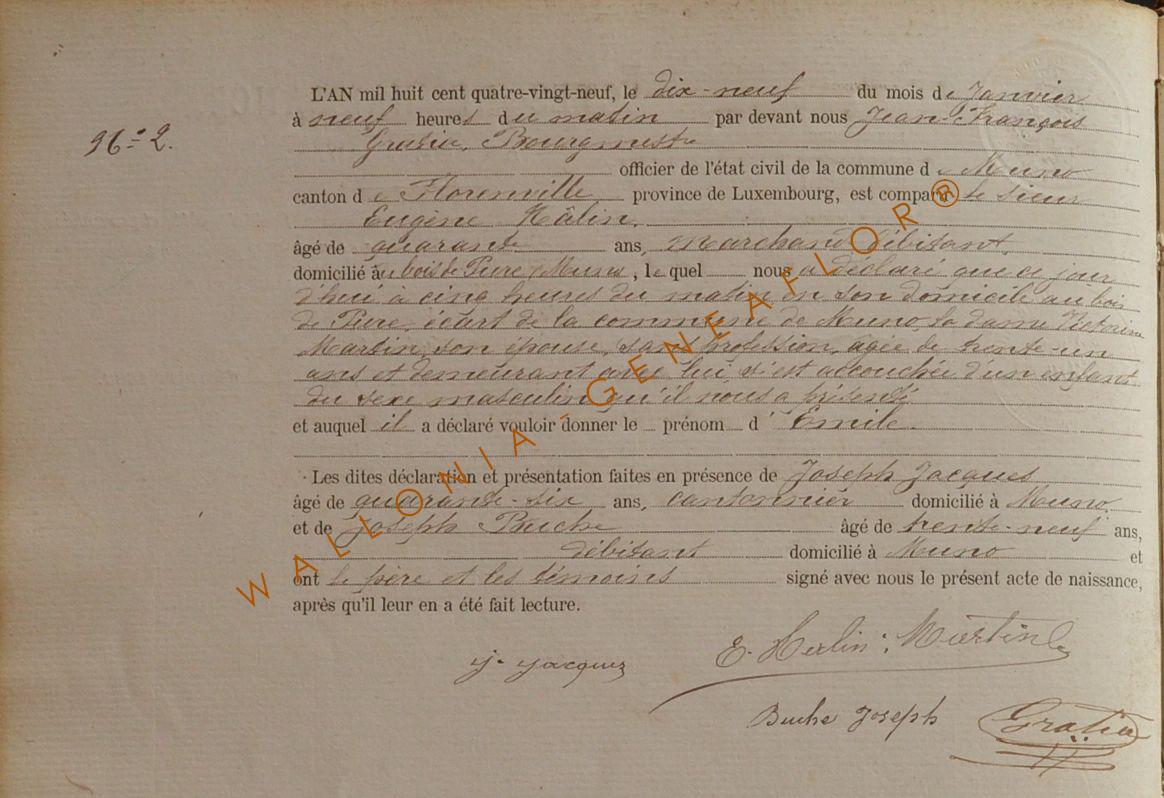 L'AN mil huit cent quatre-vingt-neuf, le dix-neuf du mois de Janvier
N° 2.
à neuf heures du matin par devant nous Jean François
Gratia, Bourgmestre
officier de l'état civil de la commune de Muno
canton de Florenville province de Luxembourg, est comparu le sieur
Eugène Hâlin,
âgé de quarante ans, marchand débitant,
domicilié au bois de Pure, Muno, lequel nous a déclaré que ce jour
d'hui à cinq heures du matin en son domicile au bois
de Pure, écart de la commune de Muno, la dame Victorine
Martin, son épouse, sans profession, agée de trente-un
ans et demeurant avec lui, s'est accouchée d'un enfant
du sexe masculin qu'il nous a présenté
et auquel il a déclaré vouloir donner le prénom d'Emile.
Les dites déclaration et présentation faites en présence de Joseph Jacques
âgé de quarante-six ans, cantonnier domicilié à Muno
et de Joseph Buche âgé de trente-neuf ans,
débitant domicilié à Muno et
ont le père et les témoins signé avec nous le présent acte de naissance,
après qu'il leur en a été fait lecture.
J. Jacques
E. Halin: Martin
Buche Joseph
Gratia
WALLONIA - GENEAFLOR®